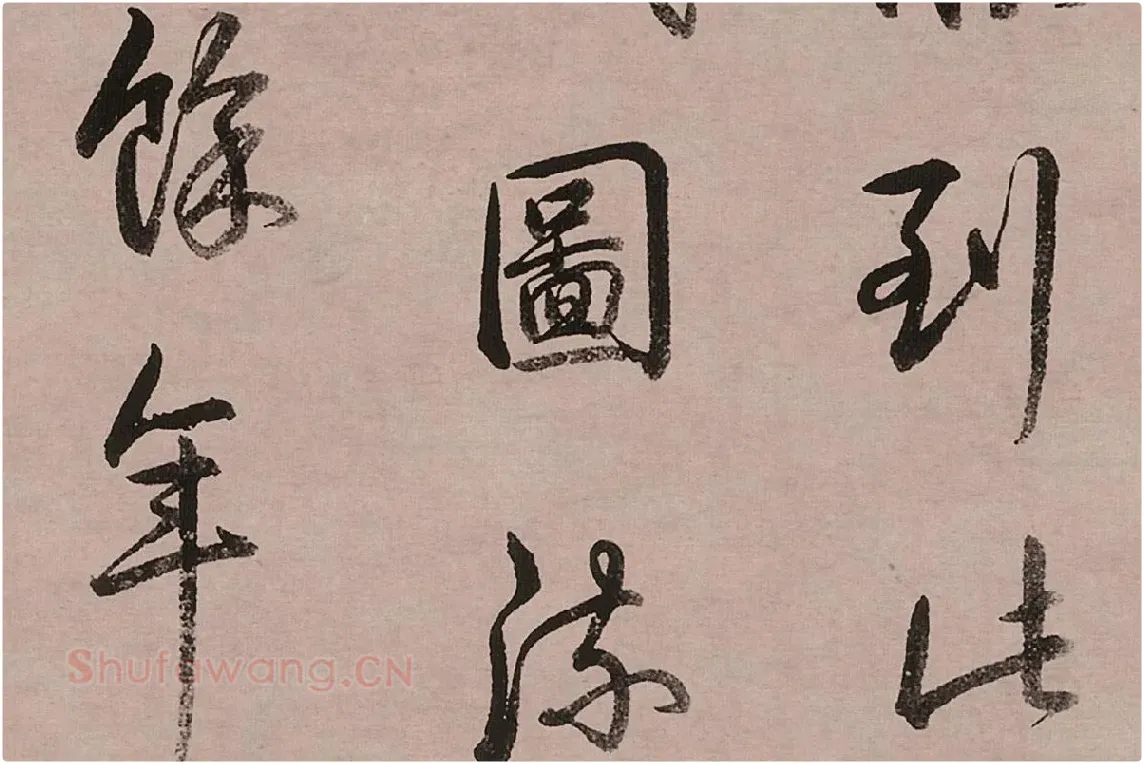 到此
圖
餘年
Shufawang.CN